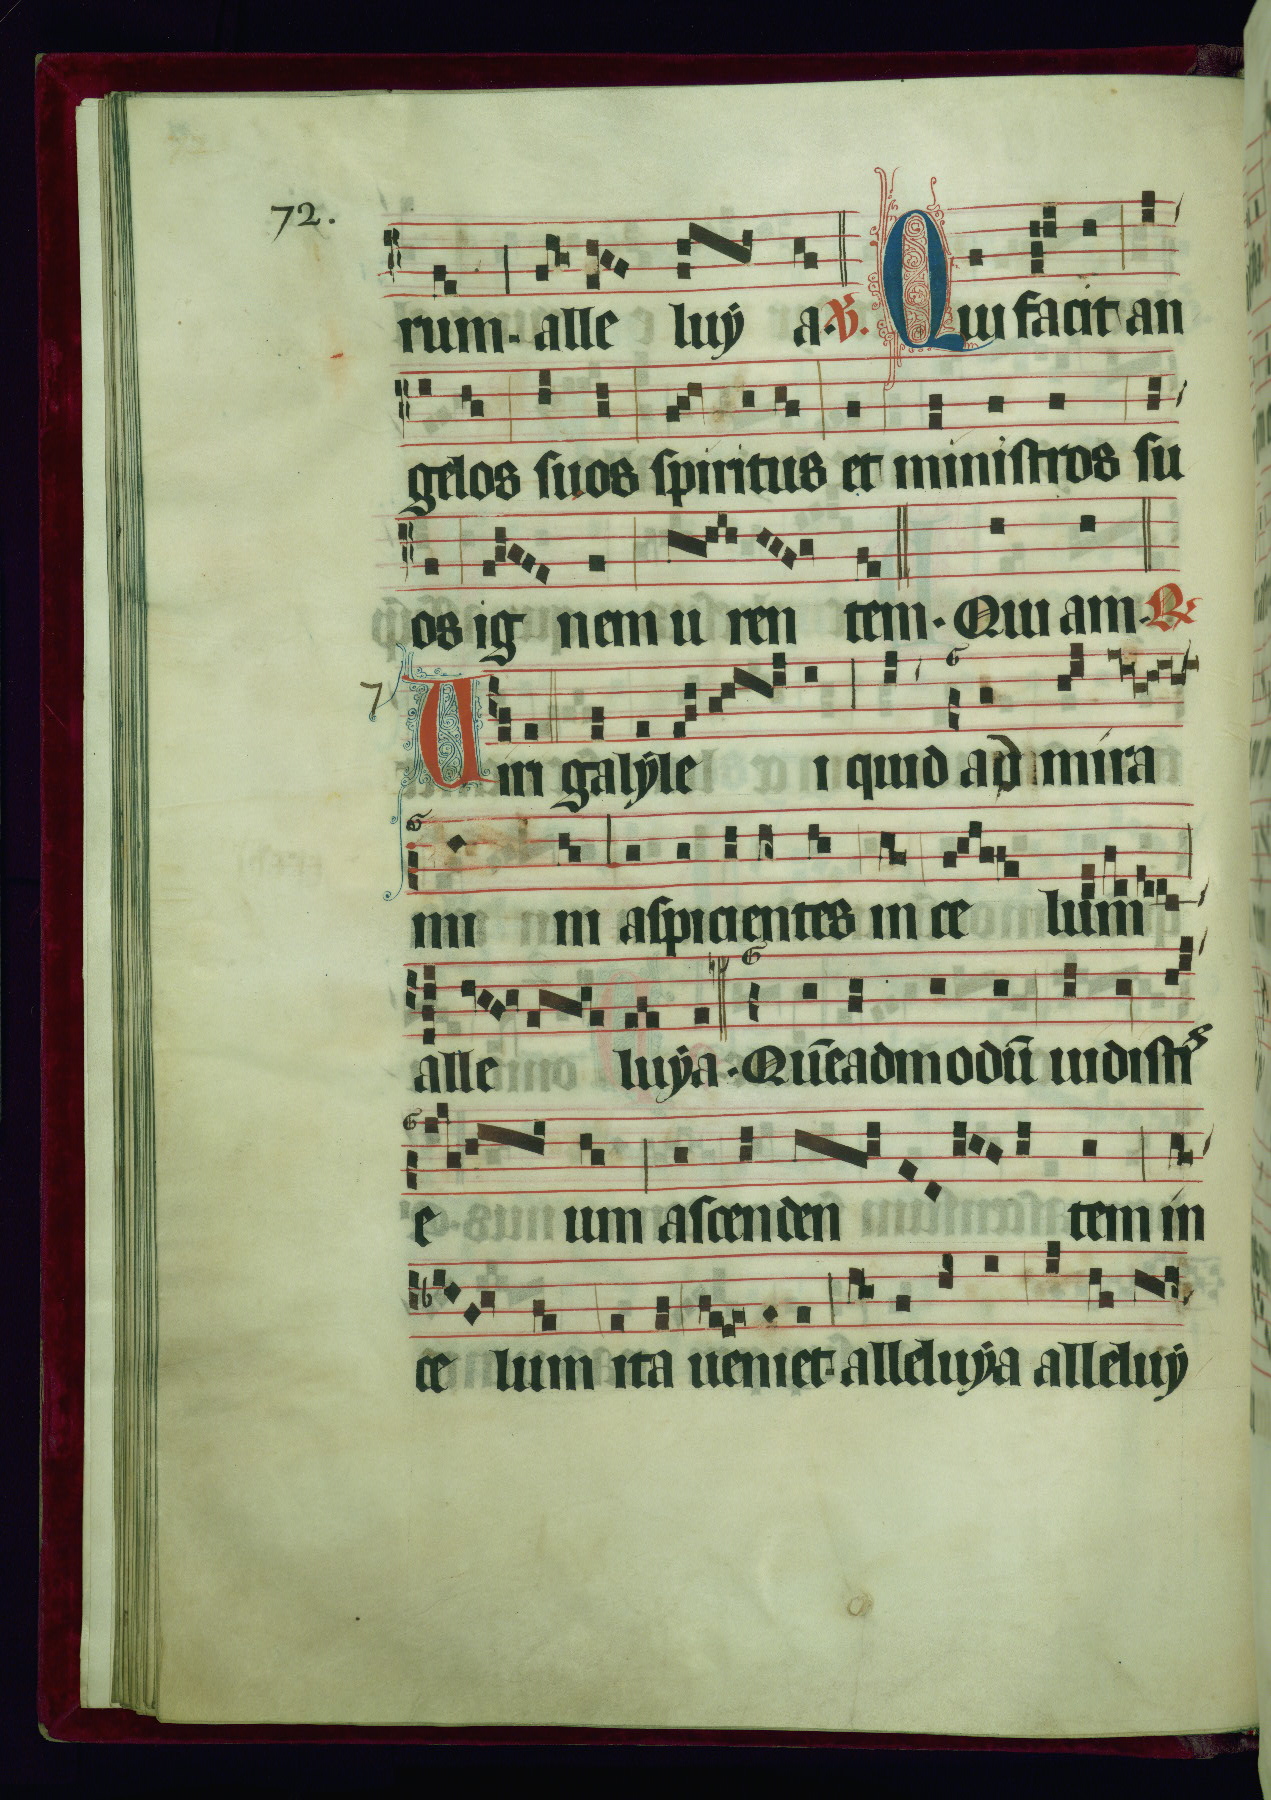 72.
rum· alle luÿ a· ℣. Qui facit an
gelos suos spiritus et ministros su
os ig nem u ren tem· Qui am· ℞
7 Uiri galÿle i quid ad mira
mi ni aspicientes in ce lum
alle luÿa· Quēadmodū uidistis
e um ascenden tem in
ce lum ita ueniet· alleluÿa alleluÿ